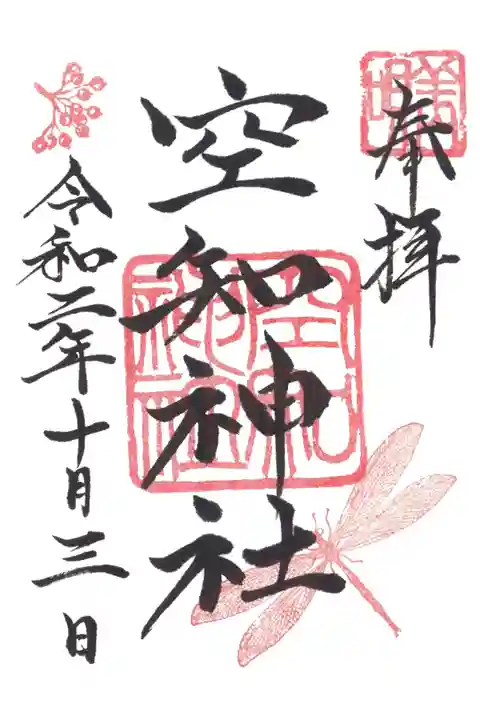 奉拝
空知神社
令和二年十月三日
美唄
空知神社